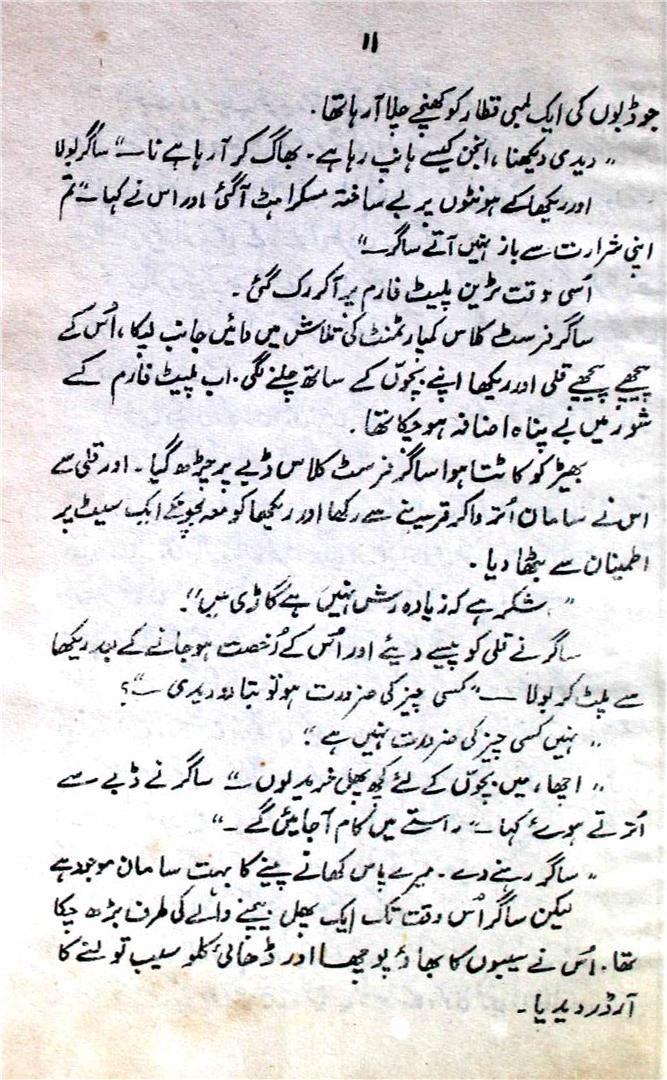 ۱۱
جو ڈبوں کی ایک لمبی قطار کو کھینچے چلا آ رہا تھا۔
“ دیدی دیکھنا، انجن کیسے ہانپ رہا ہے۔ بھاگ کر آ رہا ہے نا —” ساگر بولا
اور ریکھا کے ہونٹوں پر بے ساختہ مسکراہٹ آ گئی اور اس نے کہا —“ تم
اپنی شرارت سے باز نہیں آتے ساگر —”
اُسی وقت ٹرین پلیٹ فارم پر آ کر رک گئی۔
ساگر فرسٹ کلاس کمپارٹمنٹ کی تلاش میں دائیں جانب لپکا، اُس کے
پیچھے پیچھے قلی اور ریکھا اپنے بچوں کے ساتھ چلنے لگی۔ اب پلیٹ فارم کے
شور میں بے پناہ اضافہ ہو چکا تھا۔
بھیڑ کو کاٹتا ہوا ساگر فرسٹ کلاس ڈبے پر چڑھ گیا۔ اور قلی سے
اس نے سامان اُتروا کر قرینے سے رکھا اور ریکھا کو معہ بچوں کے ایک سیٹ پر
اطمینان سے بٹھا دیا۔
“ شکر ہے کہ زیادہ رش نہیں ہے گاڈی میں”۔
ساگر نے قلی کو پیسے دیئے اور اُس کے رُخصت ہو جانے کے بعد ریکھا
سے پلٹ کر بولا —“ کسی چیز کی ضرورت ہو تو بتا دو دیدی —”؟
“ نہیں کسی چیز کی ضرورت نہیں ہے”۔
“ اچھا، میں بچوں کے لئے کچھ پھل خرید لوں —” ساگر نے ڈبے سے
اُترتے ہوئے کہا —“ راستے میں کام آ جائیں گے —”
“ ساگر رہنے دے۔ میرے پاس کھانے پینے کا بہت سامان موجود ہے
لیکن ساگر اُس وقت تک ایک پھل بیچنے والے کی طرف بڑھ چکا
تھا۔ اُس نے سیبوں کا بھاؤ پوچھا اور ڈھائی کلو سیب تولنے کا
آرڈر دیدیا۔